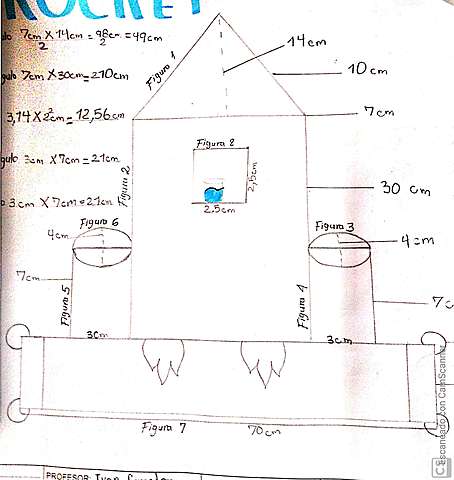 ROCKET
7cm X 14cm = 98cm = 49cm
2 2
7cm X 30cm = 210cm
3,14 X 2²cm = 12,56cm
3cm X 7cm = 21cm
3cm X 7cm = 21cm
Figura 1
14cm
10cm
7cm
Figura 2
Figura 8
2,5cm
2,5cm
30 cm
Figura 6
4cm
Figura 3
4cm
7cm
Figura 5
Figura 4
3cm
3cm
Figura 7
70cm
PROFESOR:
Escaneado con CamScanner
CS